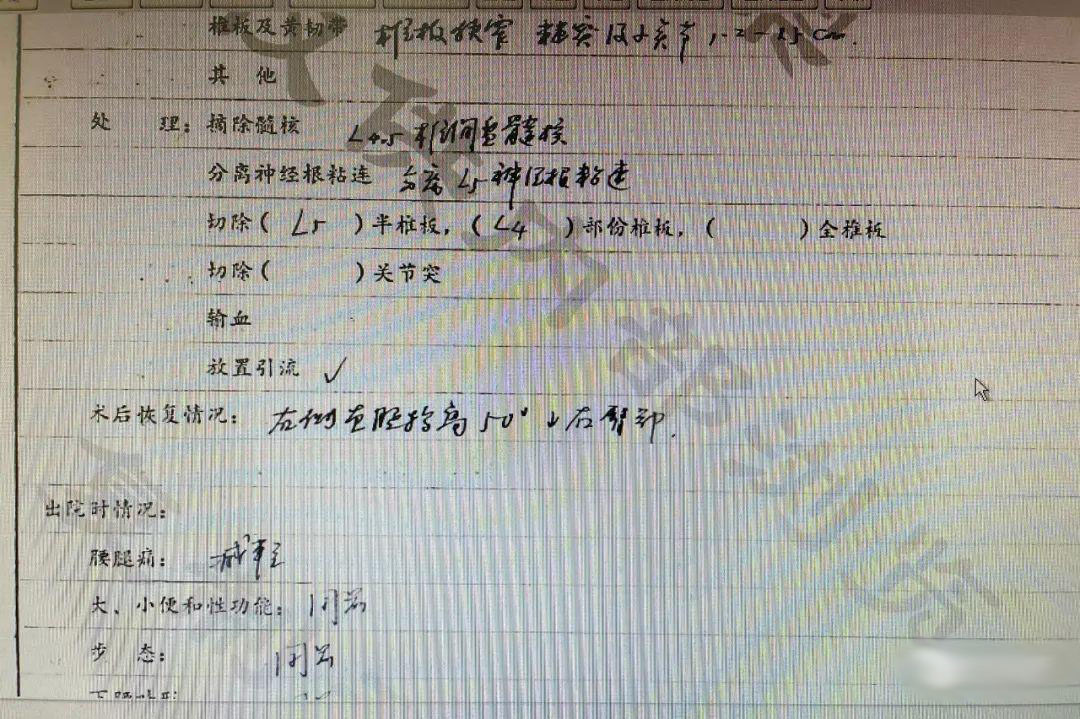 椎板及黄韧带 椎板
其 他
处 理：摘除髓核 L4.5椎间盘髓核
分离神经根粘连 分离L5神经根粘连
切除（ L5 ）半椎板，（ L4 ）部份椎板，（ ）全椎板
切除（ ）关节突
输血
放置引流 ✓
术后恢复情况： 左侧直腿抬高50°
出院时情况：
腰腿痛： 减轻
大、小便和性功能： 同前
步 态： 同前